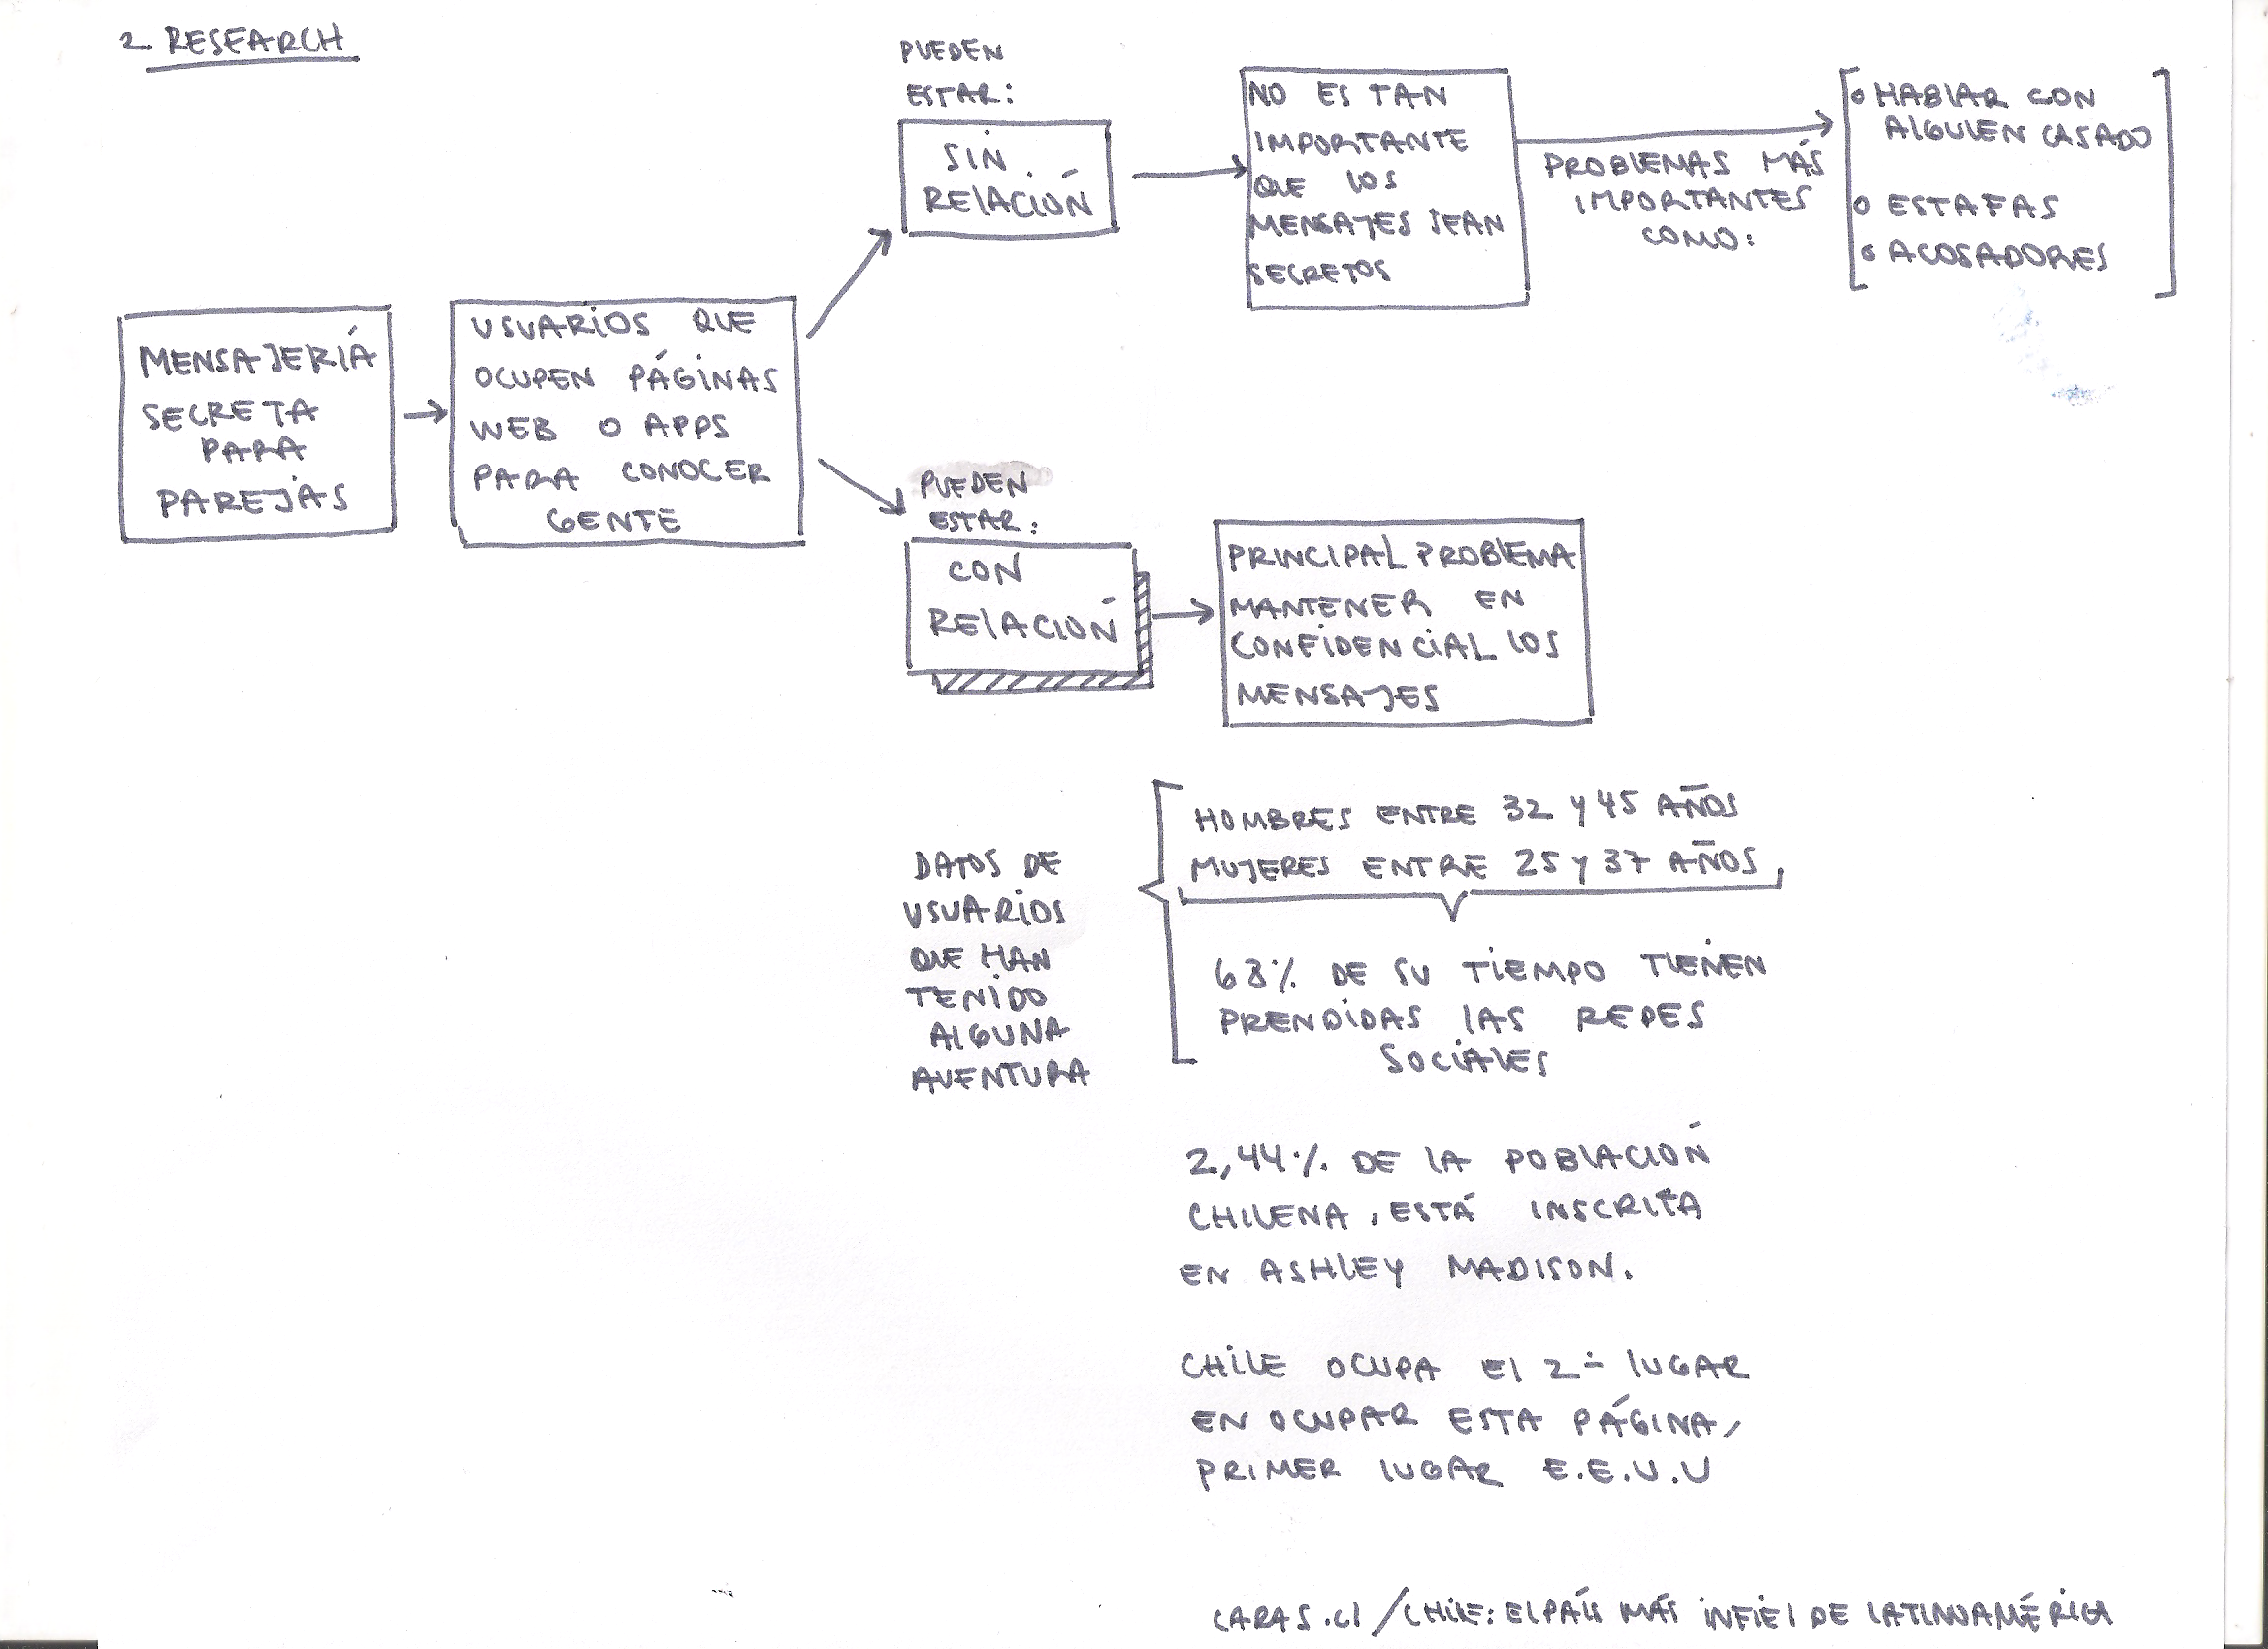 2. RESEARCH
MENSAJERIÁ
SECRETA
PARA
PAREJAS
USUARIOS QUE
OCUPEN PÁGINAS
WEB O APPS
PARA CONOCER
GENTE
PUEDEN
ESTAR:
SIN
RELACIÓN
NO ES TAN
IMPORTANTE
QUE LOS
MENSAJES SEAN
SECRETOS
PROBLEMAS MÁS
IMPORTANTES
COMO:
HABLAR CON
ALGUIEN CASADO
ESTAFAS
ACOSADORES
PUEDEN
ESTAR:
CON
RELACIÓN
PRINCIPAL PROBLEMA
MANTENER EN
CONFIDENCIAL LOS
MENSAJES
DATOS DE
USUARIOS
QUE HAN
TENIDO
ALGUNA
AVENTURA
HOMBRES ENTRE 32 Y 45 AÑOS
MUJERES ENTRE 25 Y 37 AÑOS
DE SU TIEMPO TIENEN
PRENDIDAS LAS REDES
SOCIALES
2,44% DE LA POBLACIÓN
CHILENA, ESTÁ INSCRITA
EN ASHLEY MADISON.
CHILE OCUPA EL 2º LUGAR
EN OCUPAR ESTA PÁGINA,
PRIMER LUGAR E.E.U.U
CARAS.CL / CHILE: EL PAÍS MÁS INFIEL DE LATINOAMÉRICA